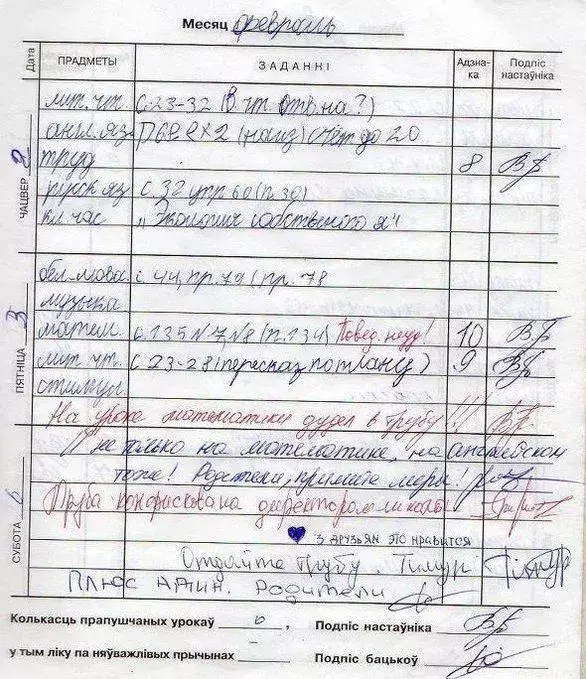 Месяц февраль
Дата ПРАДМЕТЫ ЗАДАННІ Адзнака Подпіс настаўніка
ЧАЦВЕР 2
лит. чт. с. 23-32 (В. чт. отв. на ?)
англ. яз.
труд 8 ВФ
русск яз с. 32 упр 60 (п. 30)
кл. час „Экология собственного я"
ПЯТНІЦА 3
бел. мова. с. 44, пр. 79 (пр. 78
музыка
матем. с. 135 №7 №8 (п. 134) Повед. неуд! 10 ВФ
лит. чт. с 23-28 (пересказ по плану) 9 ВФ
стимул.
На уроке математики дудел в трубу!!! ВФ
СУБОТА 6
И не только на математике, на английском
тоже! Родители, примите меры!
Труба конфискована директором школы
3 друзьям это нравится
Отдайте трубу. Тимур Тімур
Плюс адин. Родители
Колькасць прапушчаных урокаў 0, Подпіс настаўніка ВФ
у тым ліку па няўважлівых прычынах Подпіс бацькоў